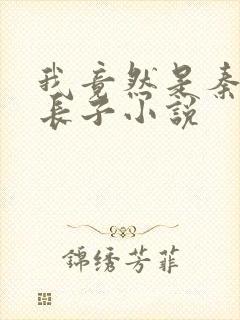 我竟然是秦
长子小说
錦绣芳菲